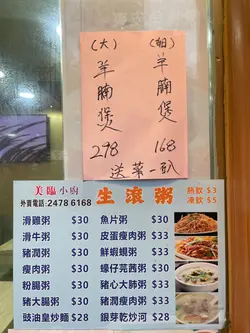 (大) 羊腩煲 298
(細) 羊腩煲 168
送菜一趴
美臨小廚
外賣電話:2478 6168
生滾粥
熱飲 $3
凍飲 $5
滑雞粥 $30
滑牛粥 $30
豬潤粥 $30
瘦肉粥 $30
粉腸粥 $30
豬大腸粥 $30
豉油皇炒麵 $28
魚片粥 $30
皮蛋瘦肉粥 $33
鮮蝦蜆粥 $33
蠔仔芫茜粥 $30
豬心大肺粥 $33
豬潤瘦肉粥 $33
銀芽乾炒河 $28